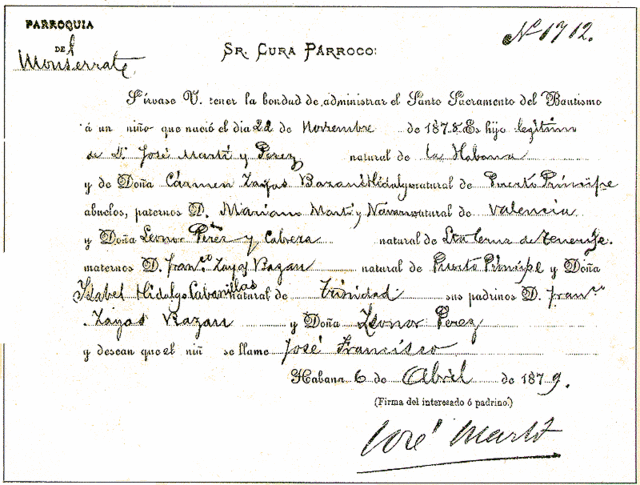 PARROQUIA
DE
Monserrate
Nº 1712.
SR. CURA PÁRROCO:
Sírvase V. tener la bondad de administrar el Santo Sacramento del Bautismo
á un niño que nació el dia 22 de Noviembre de 1878. Es hijo legitimo
de D. José Martí y Perez natural de la Habana
y de Doña Cármen Zayas Bazan é Hidalgo natural de Puerto Príncipe
abuelos, paternos D. Mariano Martí y Navarro natural de Valencia
y Doña Leonor Pérez y Cabrera natural de Sta Cruz de Tenerife.
maternos D. Franco Zayas Bazan natural de Puerto Príncipe y Doña
Isabel Hidalgo Cabanillas natural de Trinidad sus padrinos D. Franco
Zayas Bazan y Doña Leonor Perez
y desean que el niñ se llame José Francisco
Habana 6 de Abril de 1879.
(Firma del interesado ó padrino.)
José Martí